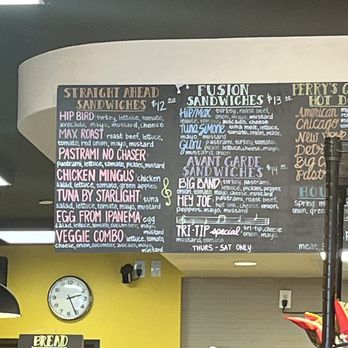 STRAIGHT AHEAD
SANDWICHES $12
HIP BIRD turkey, lettuce, tomato,
avocado, mayo, mustard, cheese
MAX ROAST roast beef, lettuce,
tomato, red onion, mayo, mustard
PASTRAMI NO CHASER
pastrami, lettuce, tomato, pickles, mustard
CHICKEN MINGUS chicken
salad, lettuce, tomato, green apples
TUNA BY STARLIGHT tuna
salad, lettuce, tomato, mayo, mustard
EGG FROM IPANEMA egg
salad, tomato, cucumber, mayo, mustard
VEGGIE COMBO lettuce, tomato,
cheese, onion, cucumber, avocado, mayo, mustard
FUSION
SANDWICHES $13
Hip/Max turkey, roast beef,
onion, mayo, mustard
lettuce, tomato, avocado, cheese
Tuna/Simone tuna melt, lettuce,
tomato, onion, pickle,
mayo, mustard, cheese
Guru pastrami, turkey, tomato,
onion, mayo, mustard
AVANT GARDE
SANDWICHES $14
BIG BAND turkey, cheese,
lettuce, pickles, pepper,
onion, mayo, mustard
HEY JOE pastrami, roast beef,
hot link, cheese, onion,
peppers, mayo, mustard
TRI-TIP special tri-tip, cheese,
onion, mayo, mustard, tomato
THURS - SAT ONLY
PERRY'S
HOT
American
Chicago
New
Detro
Big
Past
HOU
Spring m
onion, gree
meat
BREAD